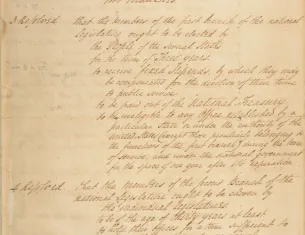 3 Resolved. that the members of the first branch of the national
legislature ought to be elected by
the People of the several States
for the term of Three years.
to receive fixed stipends, by which they may
be compensated for the devotion of their time
to public service
to be paid out of the National Treasury.
to be ineligible to any Office established by a
particular State or under the authority of the
United States (except those peculiarly belonging to
the functions of the first branch) during the term
of service, and under the national government
for the space of one year after its expiration.
4 Resolved. that the members of the second Branch of the
national Legislature ought to be chosen by
the individual Legislatures.
to be of the age of thirty years at least
to hold their offices for a term sufficient to